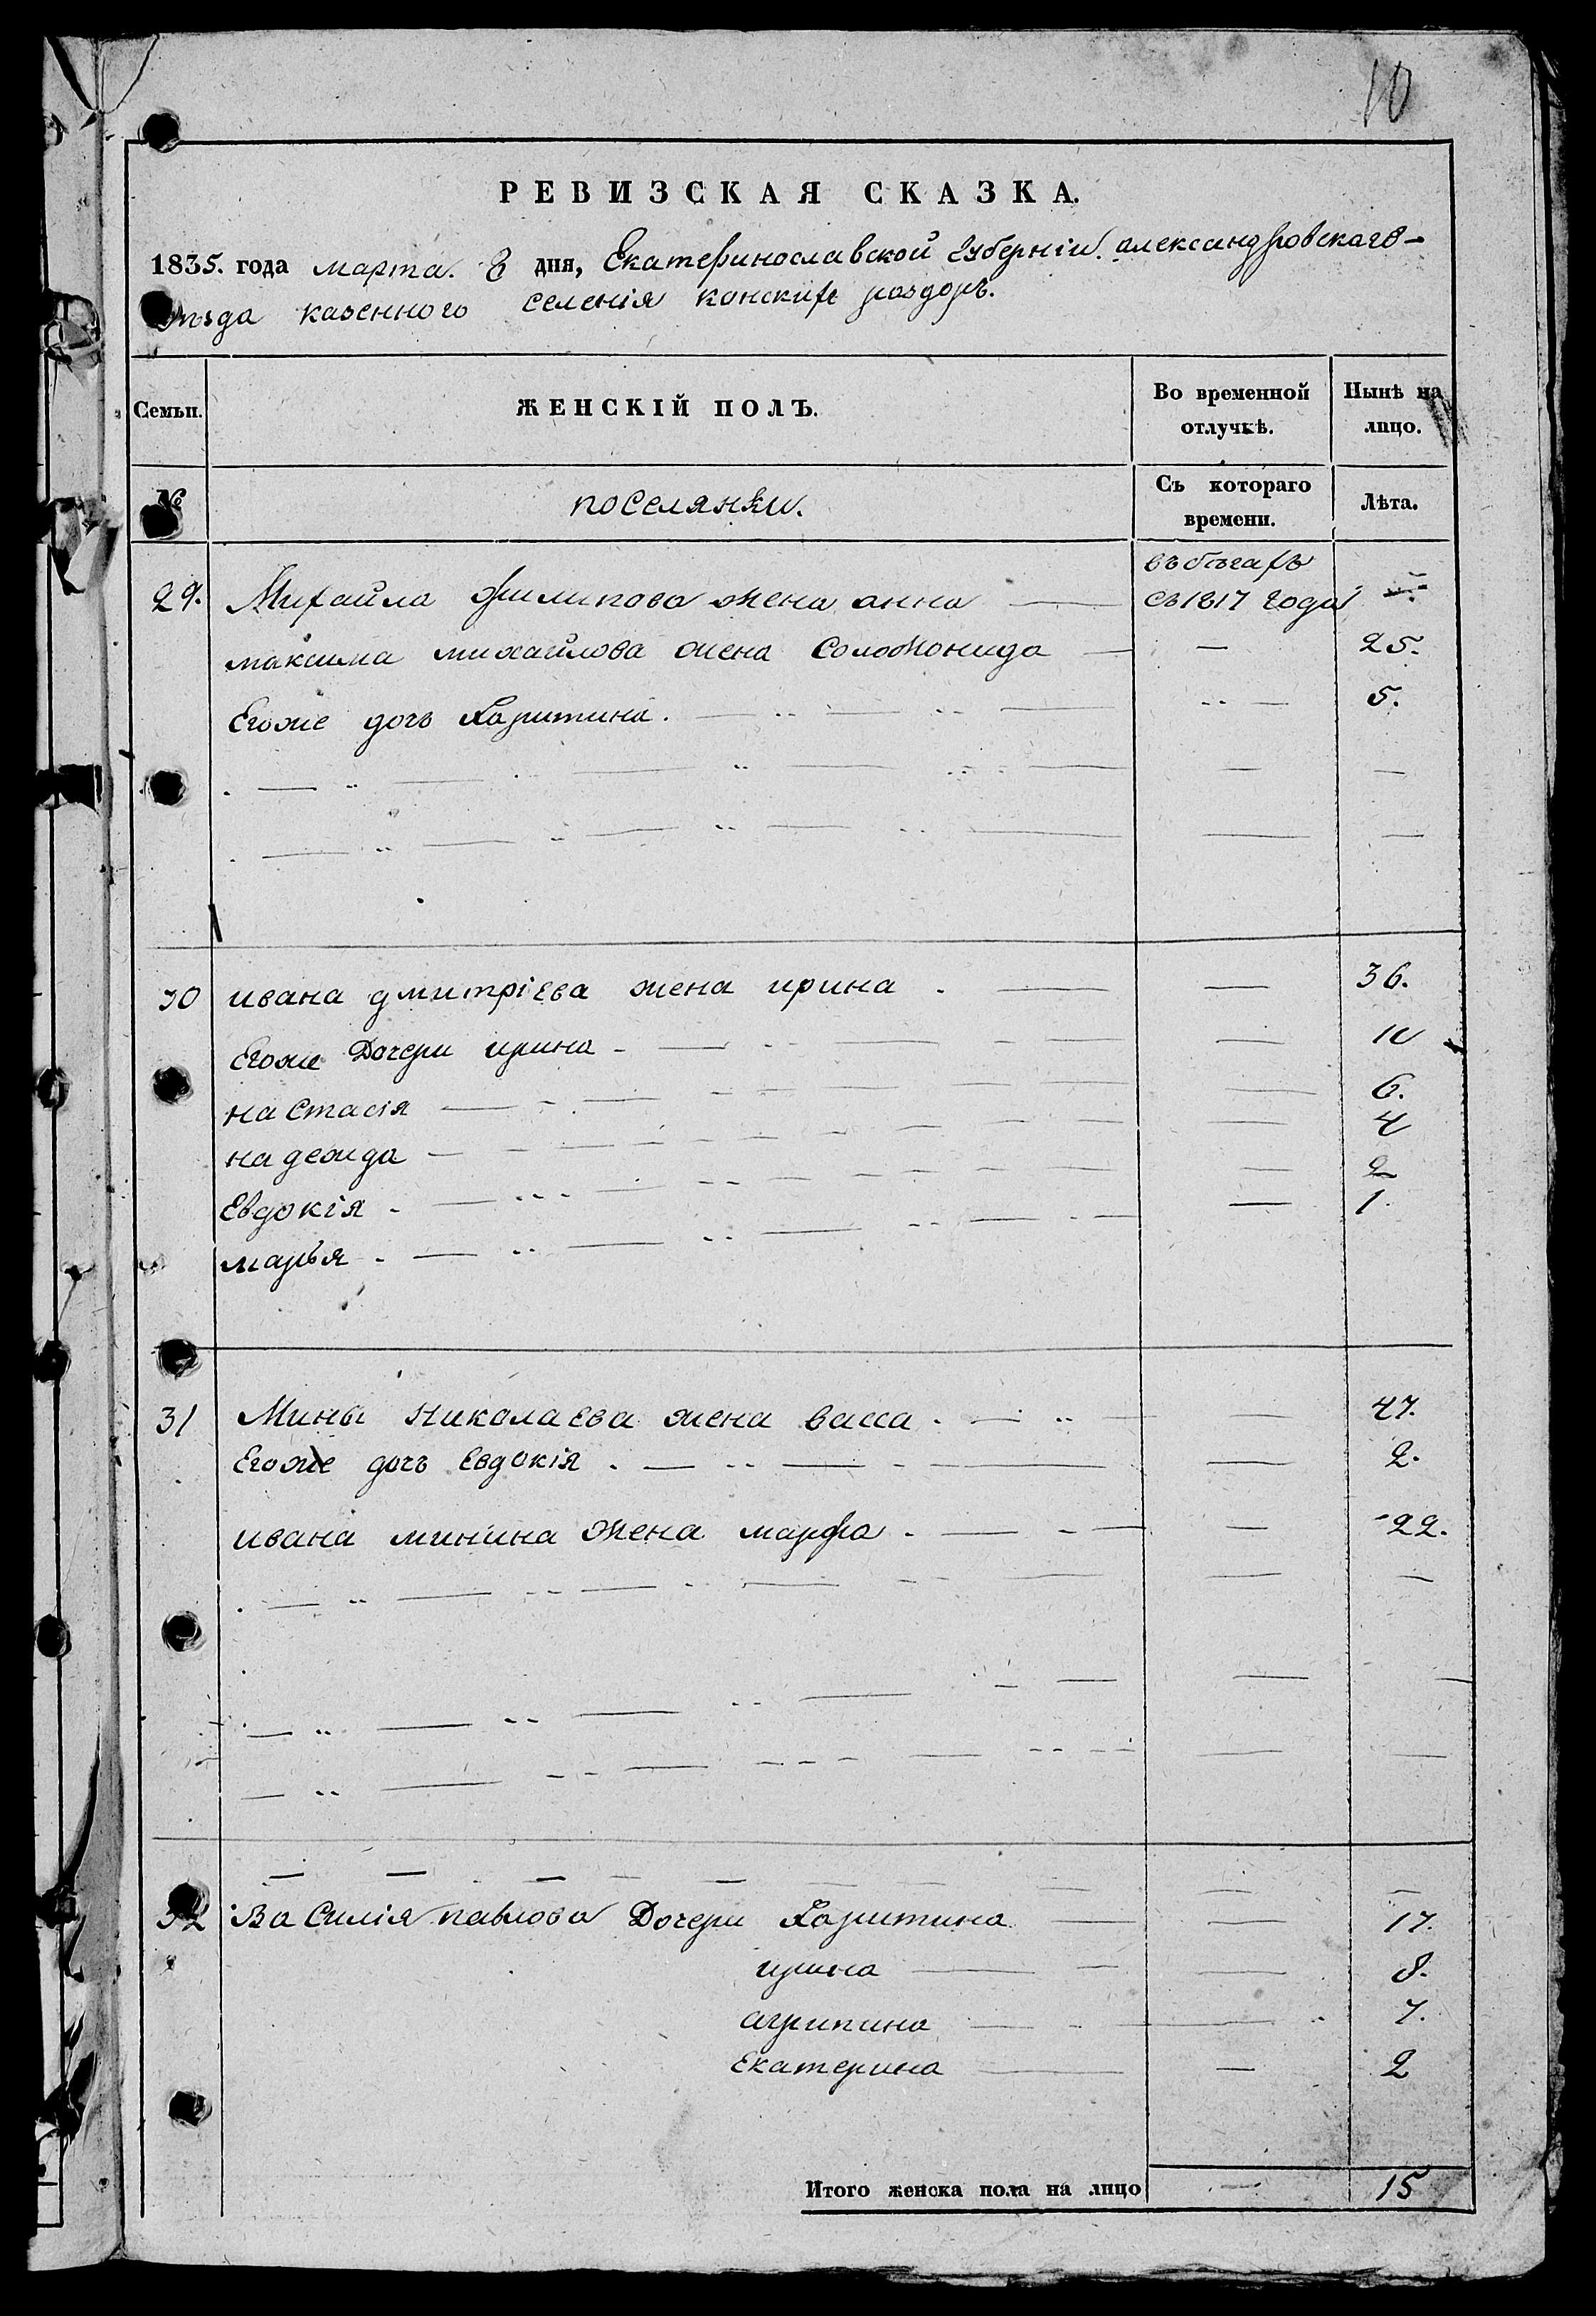 10
РЕВИЗСКАЯ СКАЗКА.
1835. года марта. 8 дня, Екатеринославской губерніи. александровскаго-
уезда казенного селенія конских раздоръ.
Семьи. ЖЕНСКІЙ ПОЛЪ. Во временной отлучкѣ. Нынѣ на лицо.
№ поселянки. Съ котораго времени. Лѣта.
въ бѣгахъ
29. Михайла Филипова жена анна — съ 1817 года
максима михайлова жена соломонида — — 25.
Егоже дочь Харитина. — 5.
30 ивана дмитріева жена ирина . — — 36.
Егоже Дочери ирина - — — 10
настасія — — 6.
надежда — — 4
Евдокія . — — 2
марья . — — 1.
31 Мины николаева жена васса . — — 47.
Егоже дочь Евдокія . — — 2.
ивана минина жена марфа . — — 22.
32 Василія павлова Дочери Харитина — — 17.
ирина — — 8.
агрипина — — 7.
Екатерина — — 2
Итого женска пола на лицо — 15